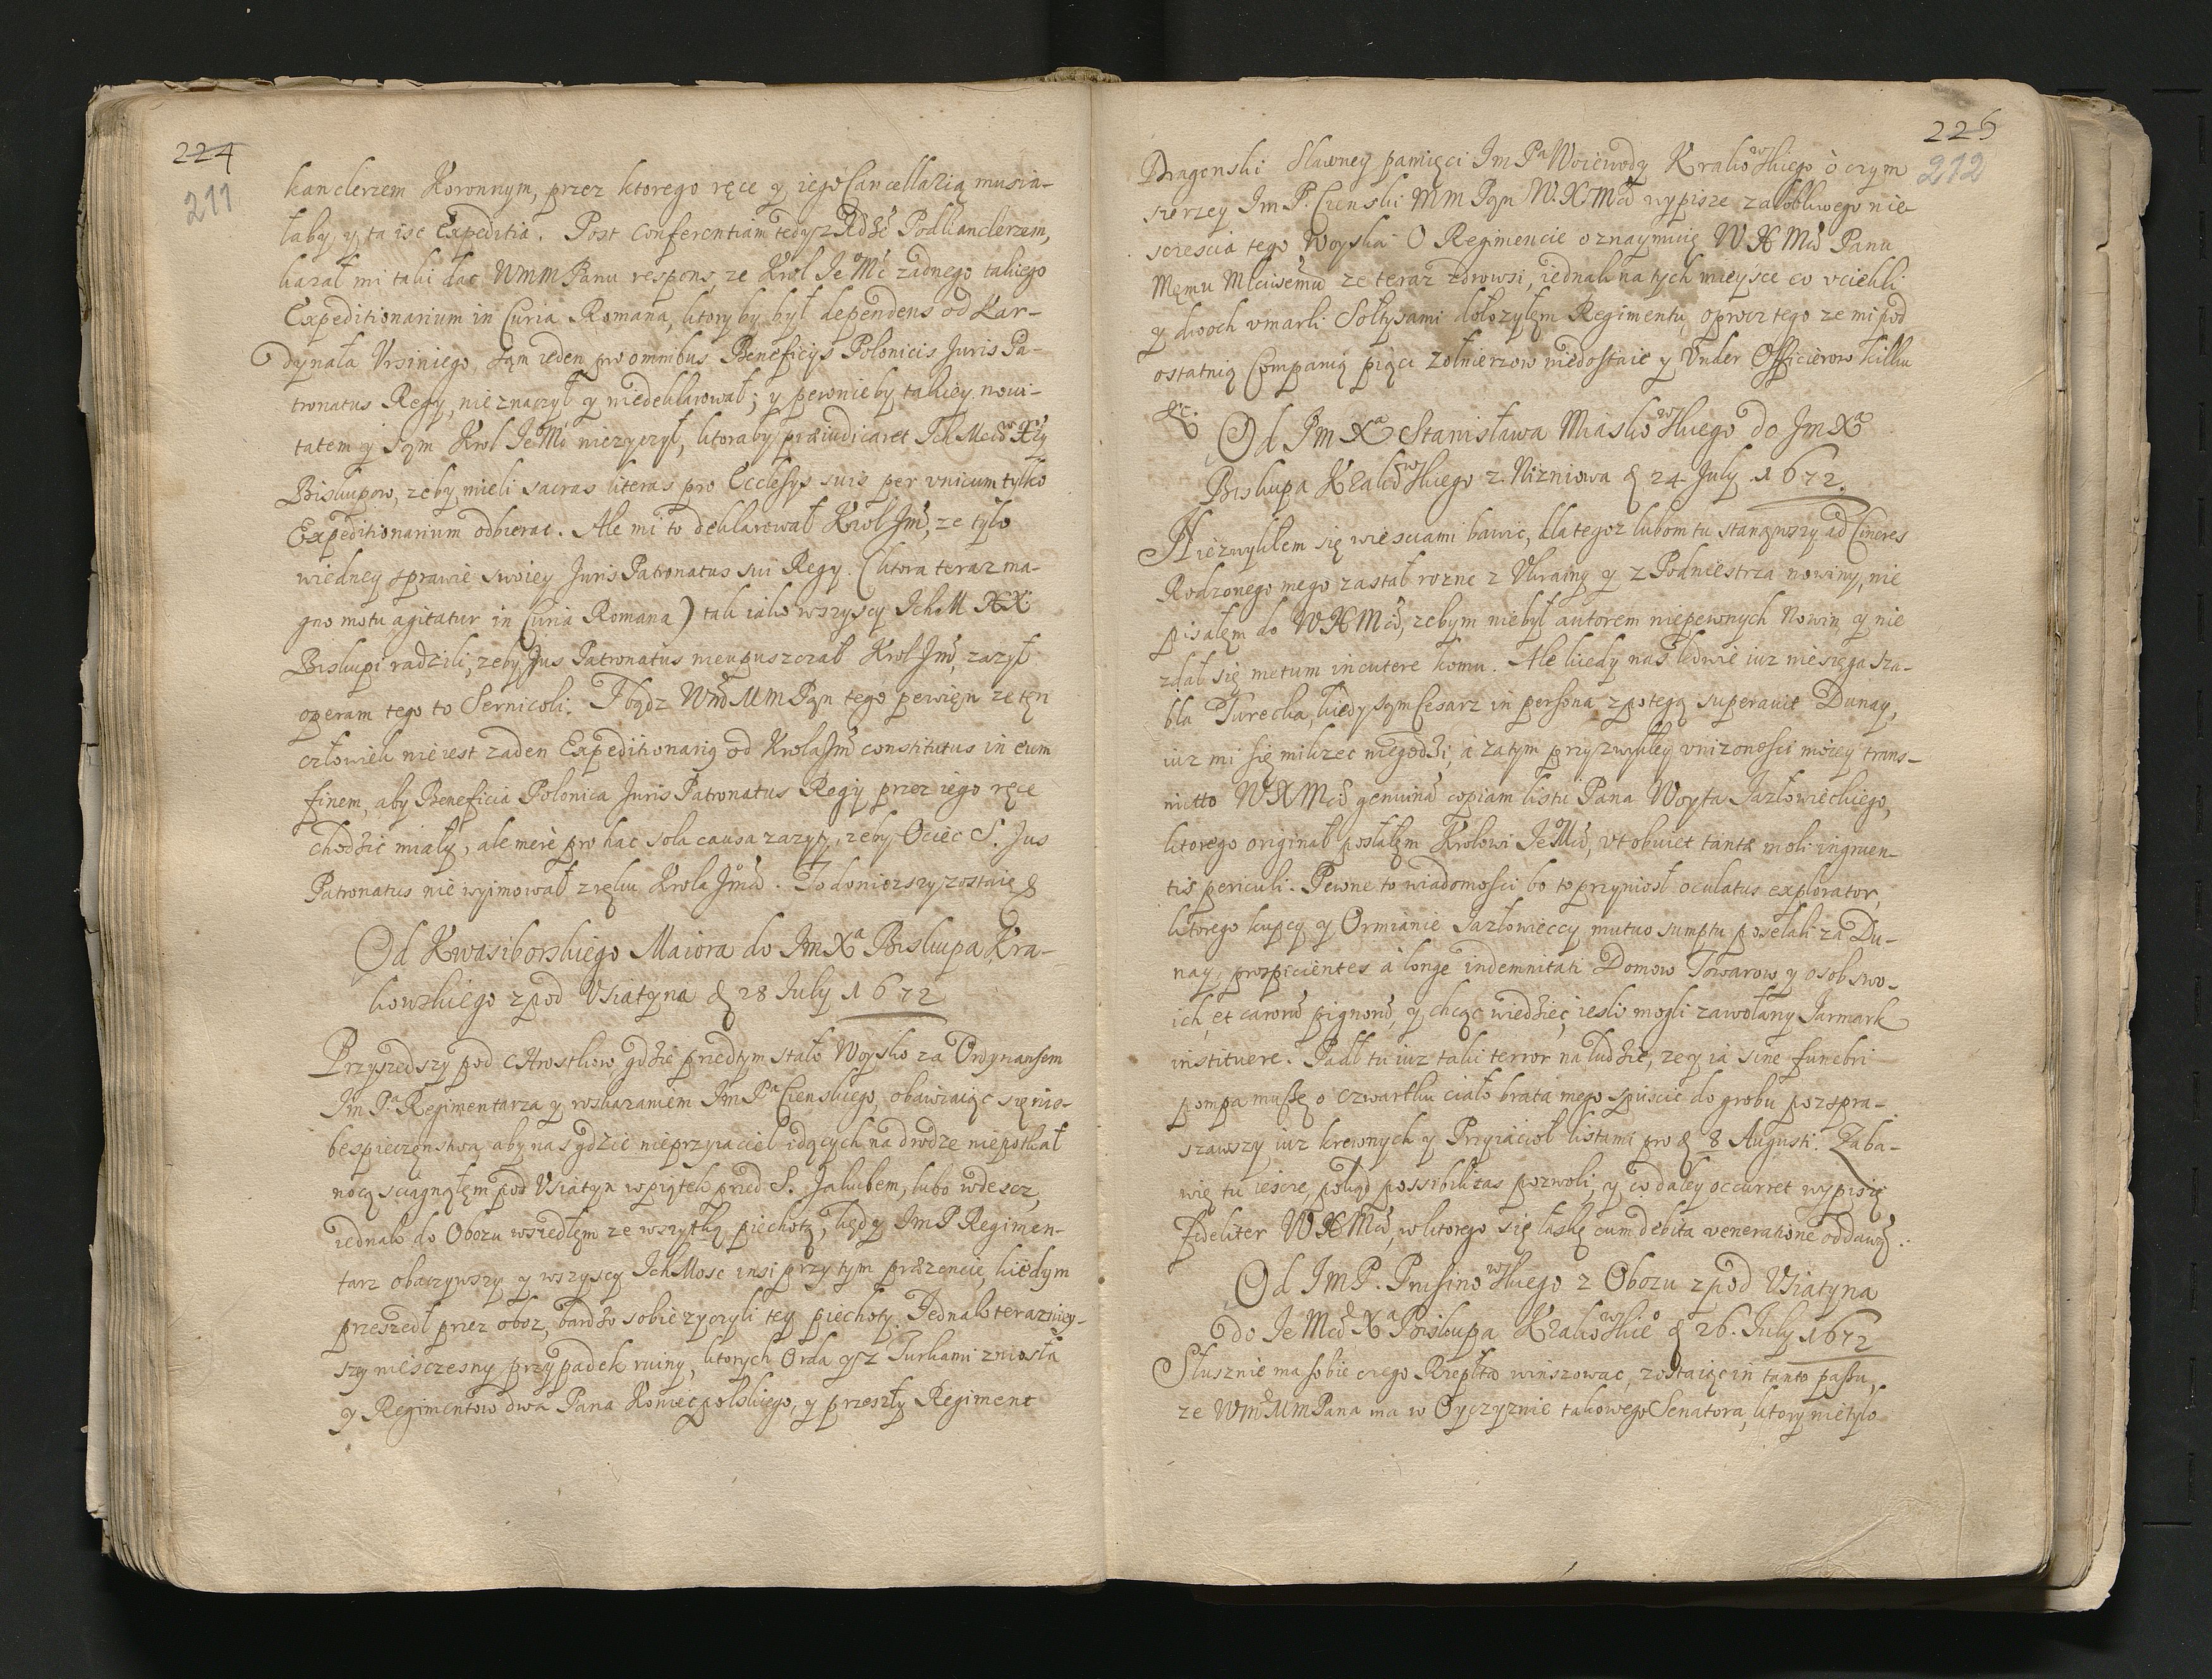 224
211
kanclerzem Koronnym, przez ktorego ręce y iego Cancellarią musia-
łaby y ta isc Expeditia. Post Conferentiam tedy z Podkanclerzem,
kazał mi taki dac WMM Panu respons, ze Krol Je Mć zadnego takiego
Expeditionarium in Curia Romana, ktory by był dependens od Kar-
dynała Vrsiniego, sam ieden pro omnibus Beneficijs Polonicis Juris Pa-
tronatus Regij, nie znaczył y niedeklarował; y pewnieby takiey novi-
tatem y Sam Krol Je Mć nie zyczył, ktoraby præiudicaret Ich Mciom XXży
Biskupow, zeby mieli sacras literas pro Ecclesijs suis per vnicum tylko
Expeditionarium odbierac. Ale mi to deklarował Krol Jmć, ze tylo
wiedney sprawie swoiey Juris Patronatus sui Regij (ktora teraz ma-
gno motu agitatur in Curia Romana) tak iako wszyscy Ich M XX
Biskupi radzili, zeby Jus Patronatus nieupuszczał Krol Jmć, zazył
operam tego to Sernicoli. I bądz WM MM Pan tego pewien ze ten
człowiek nie iest zaden Expeditionarius od Krola Jmći constitutus in eum
finem, aby Beneficia Polonica Juris Patronatus Regij przez iego ręce
chodzic miały, ale merè pro hac sola causa zazyty, zeby Ociec S. Jus
Patronatus nie wyimował z ręku Krola Jmći. To doniozszy zostaię &
Od Kwasiborskiego Maiora do Jm Xa Biskupa Kra-
kowskiego z pod Vsiatyna d 28 July 1672
Przyszedszy pod Chrostkow gdzie przedtym stało Woysko za Ordynansem
Im Pa Regimentarza y roskazaniem Im Pa Cienskiego, obawiaiąc się nie-
bespieczenstwa, aby nas gdzie nieprzyiaciel idących na drodze niepotkał
nocą sciągnąłem pod Vsiatyn w piątek przed S. Jakubem, lubo w descz,
iednak do Obozu wszedłem ze wszytką piechotą, kędy Im P Regimen-
tarz obaczywszy y wszyscy Ich Mosc insi przy tym præzencie, kiedym
przeszedł przez oboz, bardzo sobie zyczyli tey piechoty. Jednak terazniey-
szy niesczesny przypadek ruiny, ktorych Orda y z Turkami zniosła
y Regimentow dwa Pana Koniecpolskiego, y przeszły Regiment
226
212
Dragonski Sławney pamięci Im Pa Woiewody Krakowskiego ò czym
szerzey Im P. Cienski MM Pan W. X Mći wypisze załobliwego nie
sczescia tego Woyska. O Regimencie oznaymuię W X Mći Panu
Memu Mciwemu ze teraz zdrowsi, iednak na tych mieysce co vciekli
y dwoch vmarli Sołtysami dołozyłem Regimentu, oprocz tego ze mi pod
ostatnią Companią pięci zołnierzow niedostaie y Vnder Officierow kilku
&c.
Od Jm Xa Stanisława Miaskowskiego do Jm Xa
Biskupa Krakowskiego z Nizniowa d 24 July 1672.
Niezwykłem się wiesciami bawic, dla tegoz lubom tu stanąwszy ad Cineres
Rodzonego mego zastał rozne z Vkrainy y z Podniestrza nowiny, nie
pisałem do W X Mći, zebym niebył autorem niepewnych Nowin y nie
zdał się metum incutere komu. Ale kiedy nas ledwie iuz niesięga sza-
bla Turecka, kiedy sam Cesarz in persona z potęgą superavit Dunay,
iuz mi się milczec niegodzi, a zatym przyzwykłey vnizonosci moiey trans-
mitto W X Mći genuinā copiam listu Pana Woyta Jazłowieckiego,
ktorego originał posłałem Krolowi Je Mći, vt obuiet tantæ moli ingruen-
tis periculi. Pewne to wiadomosci bo to przyniosł oculatus explorator,
ktorego kupcy y Ormianie Jazłowieccy mutuo sumptu posełali za Du-
nay, prospicientes à longe indemnitati Domow Towarow y osob swo-
ich, et carorū pignorū, y chcąc wiedziec iesli mogli zawołany Jarmark
instituere. Padł tu iuz taki terror na ludzie, ze y ia sine funebri
pompa muszę o czwartku ciało brata mego spuscic do grobu pozspra-
szawszy iuz krewnych y Przyiacioł listami pro d 8 Augusti. Zaba-
wię tu iescze, pokąd possibilitas pozwoli, y co daley occurret wypiszę
fideliter W X Mći, w ktorego się łaskę cum debita veneratione oddawszy.
Od Im P. Prusinowskiego z Obozu z pod Vsiatyna
do Je Mći Xa Biskupa Krakowskie d 26. July 1672
Słusznie ma sobie czego Rzeplta winszowac, zostaiąc in tanto passu,
ze WM MM Pana ma w Oyczyznie takowego Senatora, ktory nietylo